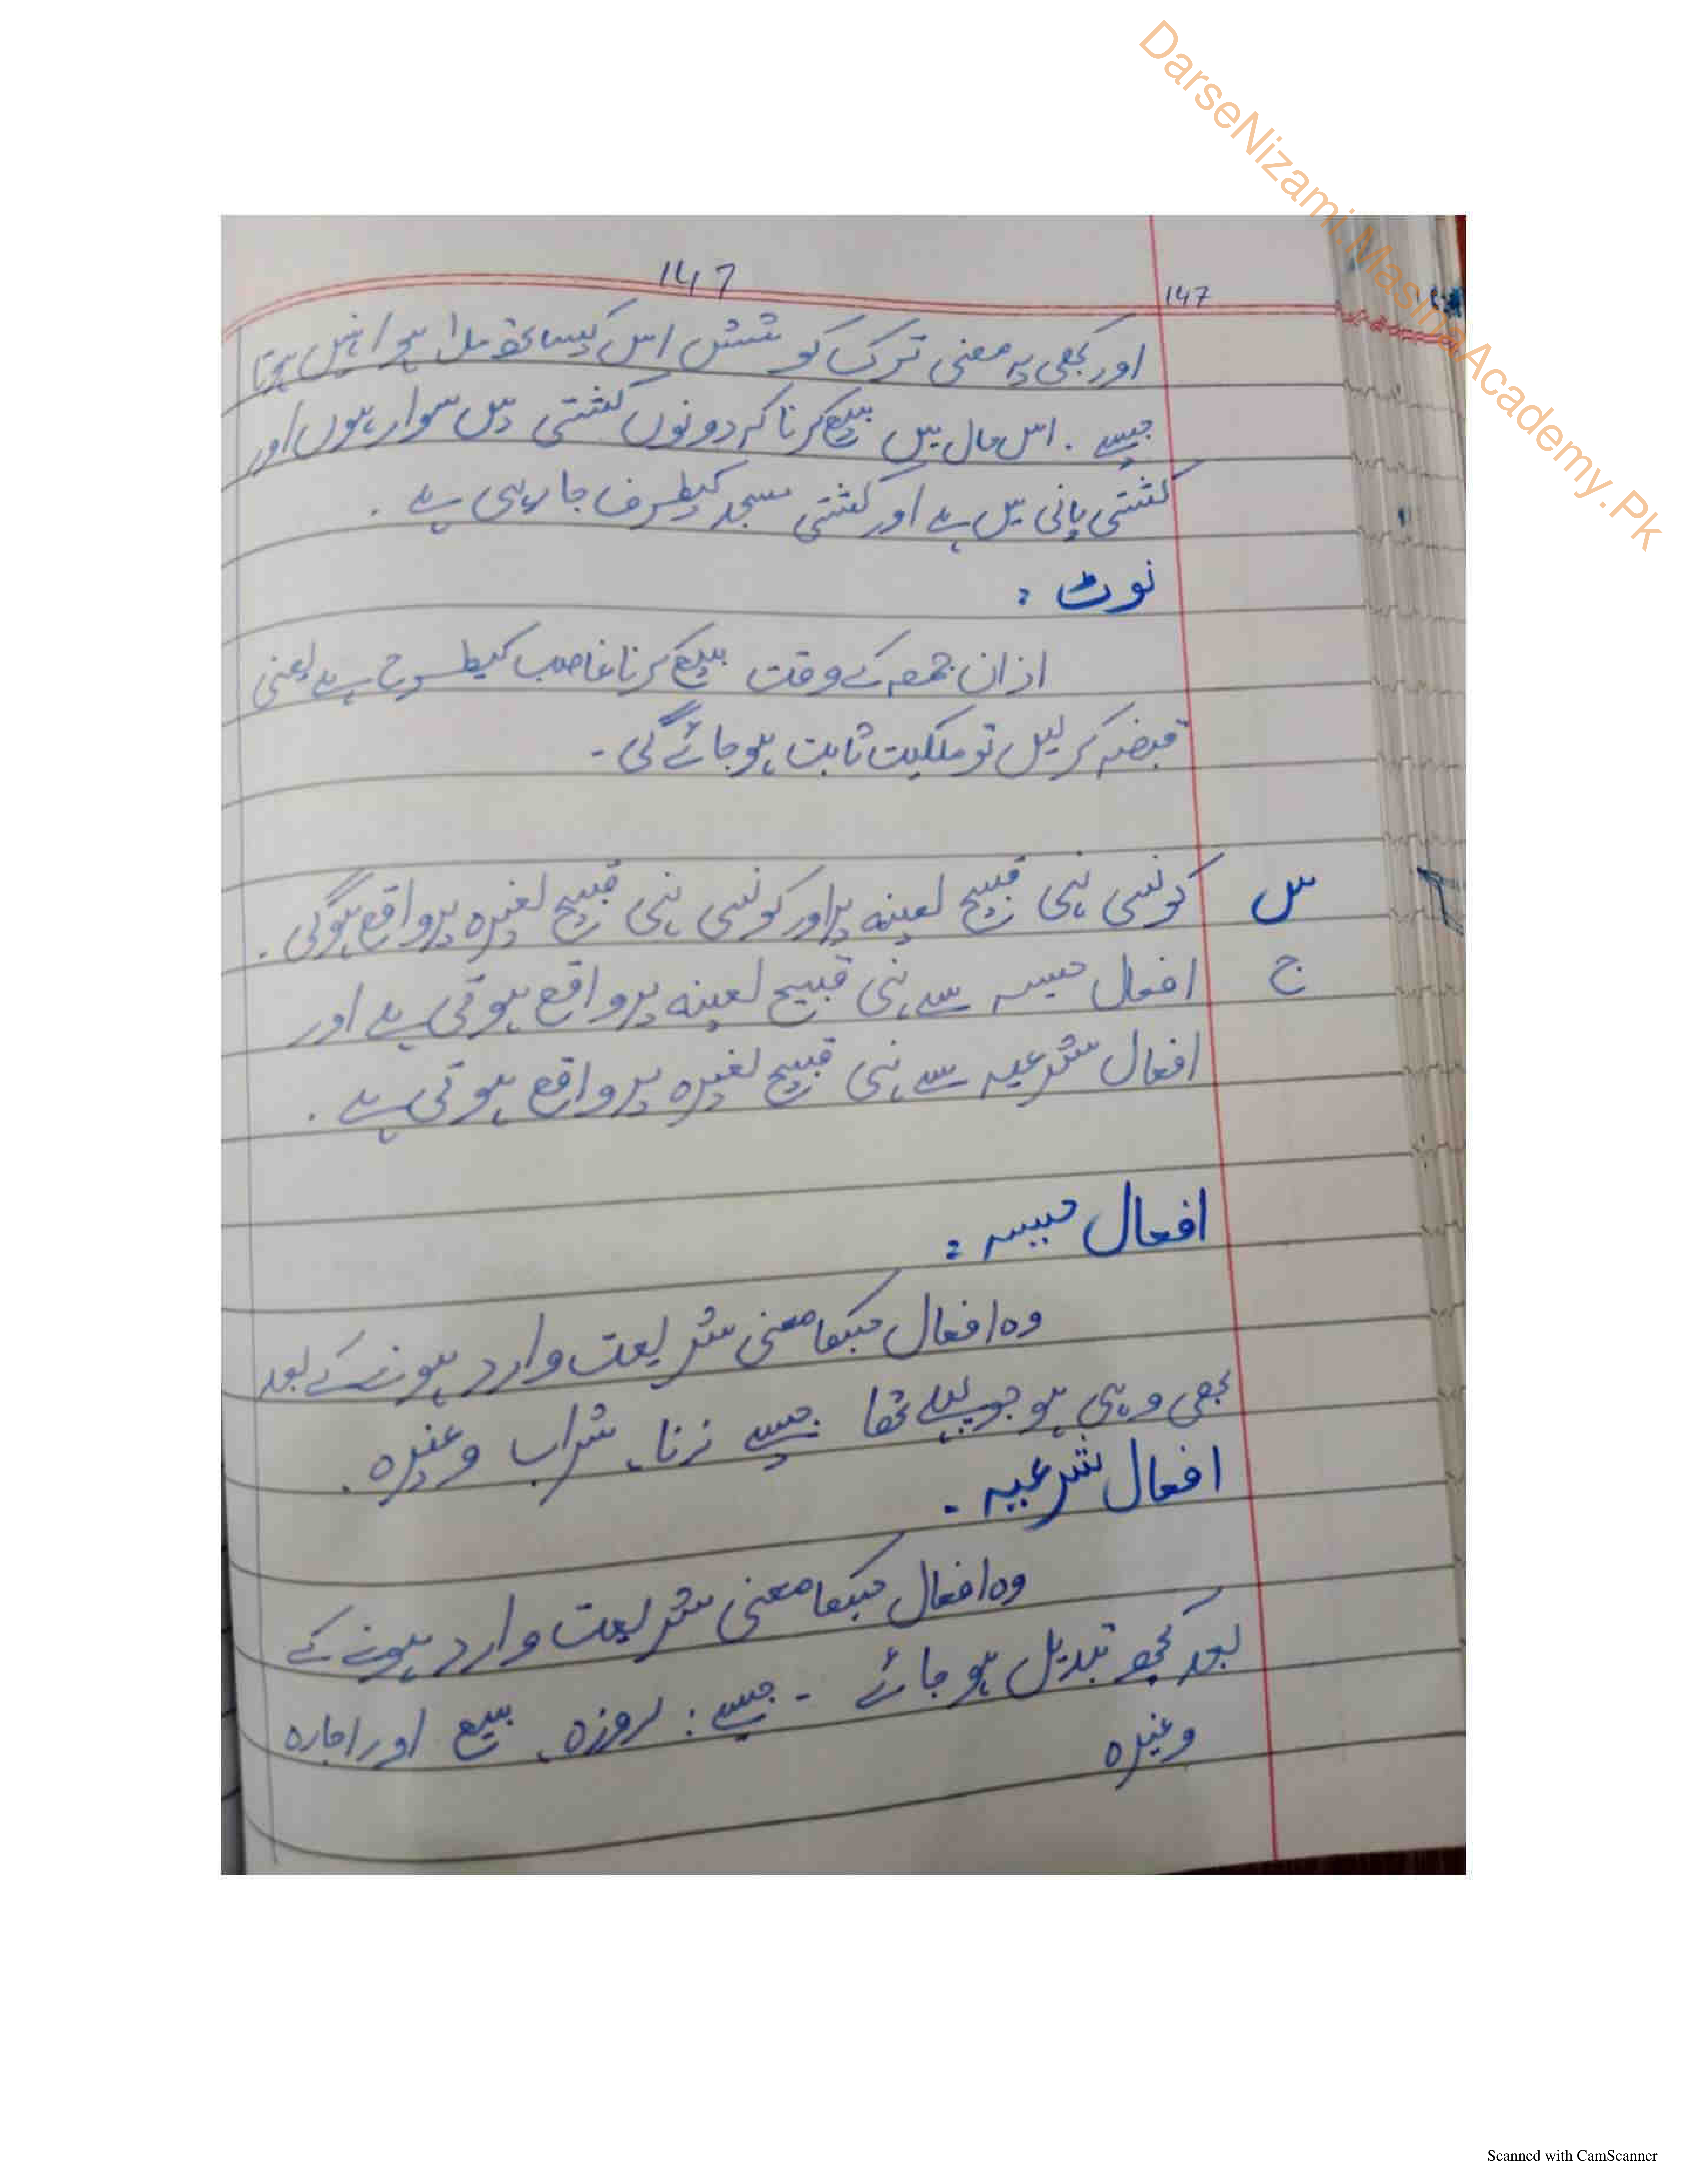 DarseNizami.MasinaAcademy.Pk
147
147
اور کبھی یہ معنی ترک کوشش اس کیساتھ ملا ہوا نہیں ہوتا
جیسے . اس حال میں بیع کرنا کہ دونوں کشتی میں سوار ہوں اور
کشتی پانی میں ہے اور کشتی مسجد کیطرف جا رہی ہے .
نوٹ :
اذان جمعہ کے وقت بیع کرنا غاصب کیطرح ہے یعنی
قبضہ کر لیں تو ملکیت ثابت ہو جائے گی -
س کونسی نہی قبیح لعینہ پر اور کونسی نہی قبیح لغیرہ پر واقع ہوگی .
ج افعال حسیہ سے نہی قبیح لعینہ پر واقع ہوتی ہے اور
افعال شرعیہ سے نہی قبیح لغیرہ پر واقع ہوتی ہے .
افعال حسیہ :
وہ افعال جنکا معنی شریعت وارد ہونے کے بعد
بھی وہی ہو جو پہلے تھا جیسے زنا، شراب وغیرہ .
افعال شرعیہ -
وہ افعال جنکا معنی شریعت وارد ہونے کے
بعد کچھ تبدیل ہو جائے - جیسے : روزہ، بیع اور اجارہ
وغیرہ
Scanned with CamScanner